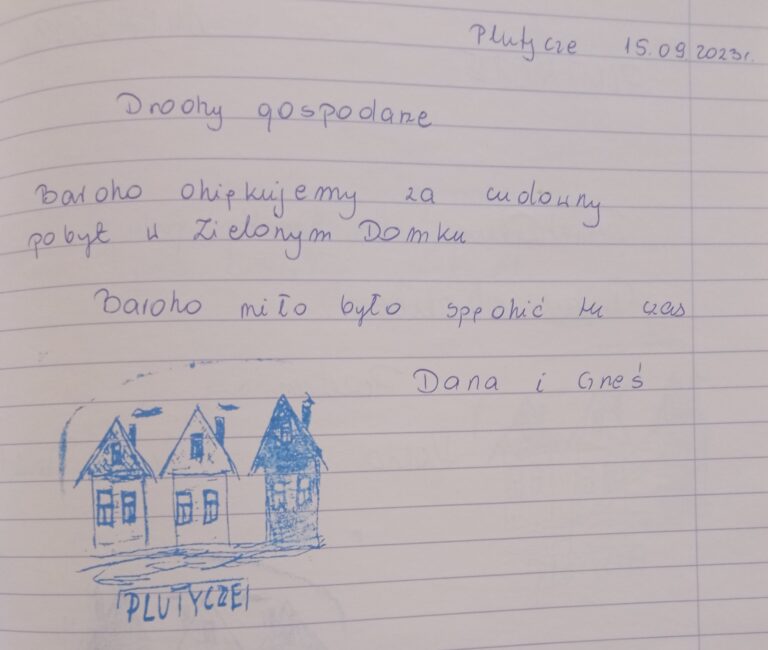 Plutycze 15.09.2023r.
Drodzy gospodarze
Bardzo dziękujemy za cudowny
pobyt w Zielonym Domku
Bardzo miło było spędzić tu czas
Dana i Grześ
PLUTYCZE